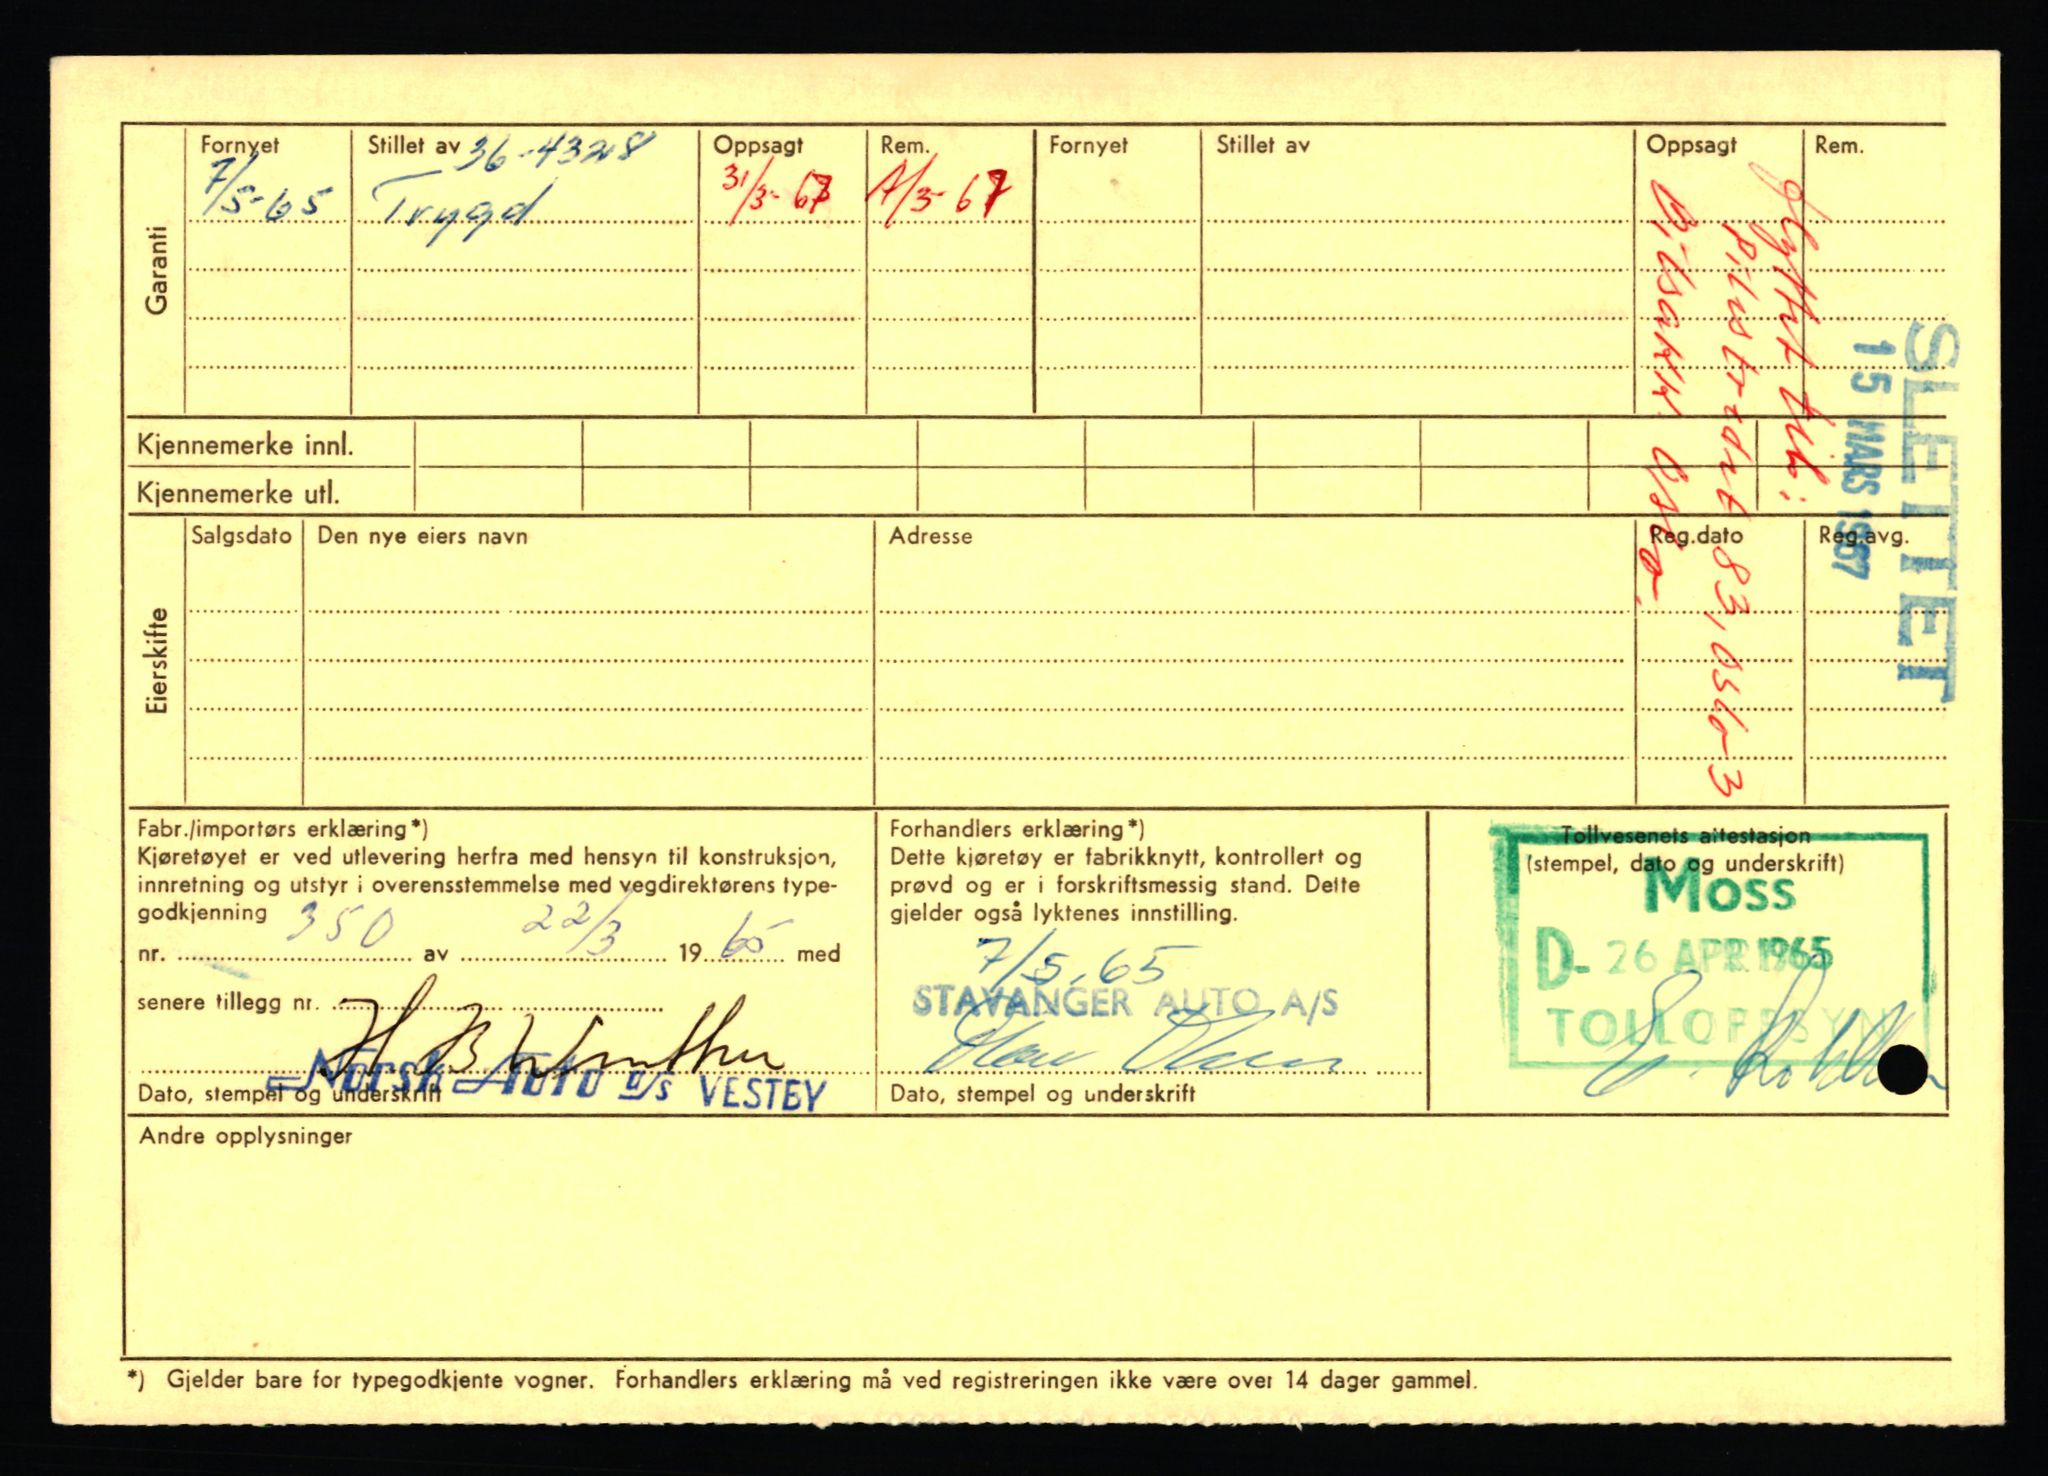 Garanti
Fornyet
Stillet av 36-4328
Oppsagt
Rem.
Fornyet
Stillet av
Oppsagt
Rem.
7/5-65
Trygd
31/3-67
/3-67
Flyttet til:
83, Oslo-3
Oslo.
SLETTET
15 MARS 1967
Kjennemerke innl.
Kjennemerke utl.
Eierskifte
Salgsdato
Den nye eiers navn
Adresse
Reg.dato
Reg.avg.
Fabr./importørs erklæring*)
Kjøretøyet er ved utlevering herfra med hensyn til konstruksjon,
innretning og utstyr i overensstemmelse med vegdirektørens type-
godkjenning
nr. 350 av 22/3 1965 med
senere tillegg nr.
H B Winther
Norsk Auto A/S VESTBY
Dato, stempel og underskrift
Forhandlers erklæring*)
Dette kjøretøy er fabrikknytt, kontrollert og
prøvd og er i forskriftsmessig stand. Dette
gjelder også lyktenes innstilling.
7/5.65
STAVANGER AUTO A/S
Dato, stempel og underskrift
Tollvesenets attestasjon
(stempel, dato og underskrift)
MOSS
D- 26 APR 1965
TOLLOPPSYN
Andre opplysninger
*) Gjelder bare for typegodkjente vogner. Forhandlers erklæring må ved registreringen ikke være over 14 dager gammel.